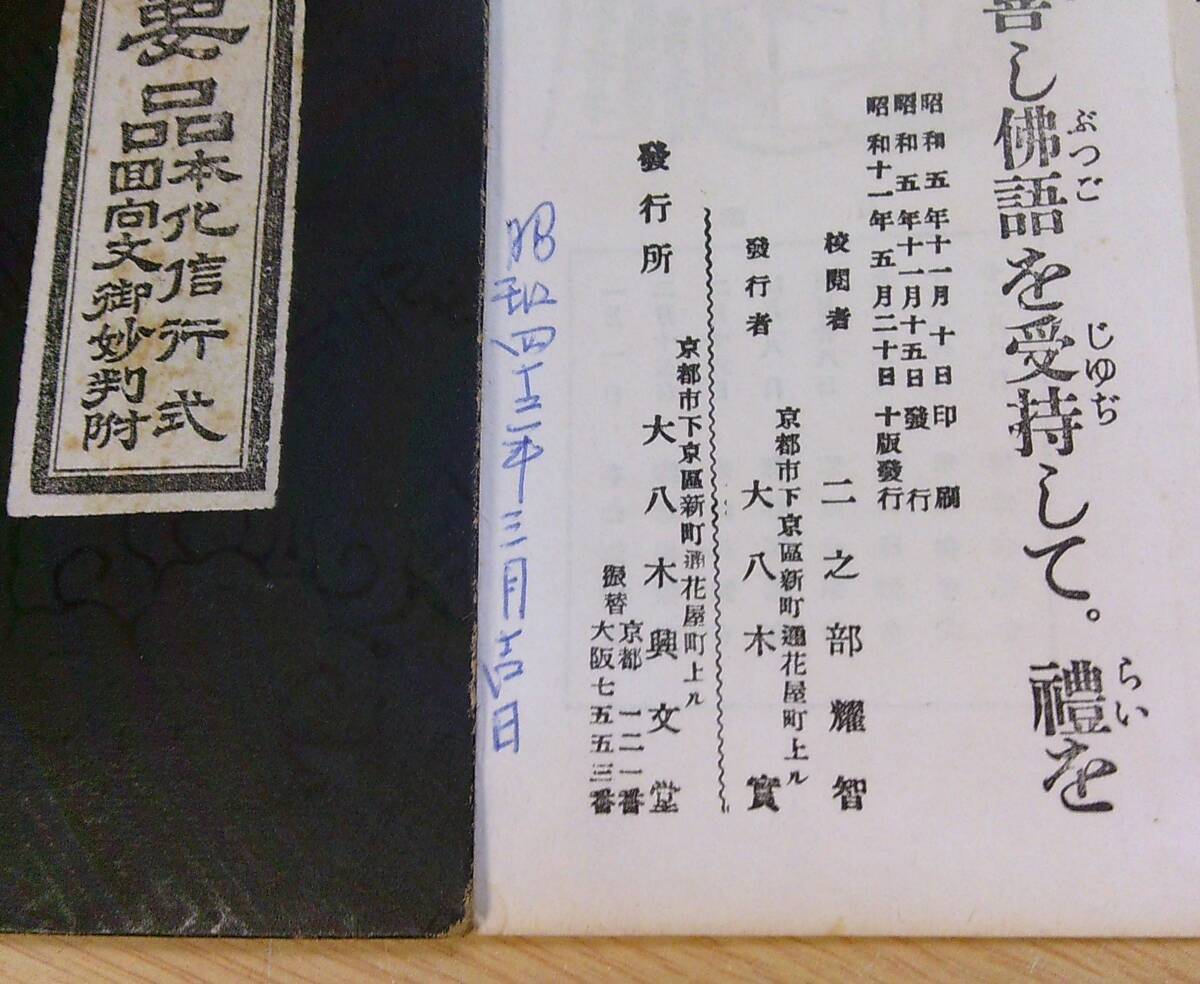 佛語を受持して。禮を
ぶつご
じゆぢ
らい
昭和五年十一月十日印刷
昭和五年十一月十五日發行
昭和十一年五月二十日十版發行
校閲者 二之部耀智
京都市下京區新町通花屋町上ル
發行者 大八木實
京都市下京區新町通花屋町上ル
發行所 大八木興文堂
振替 京都 一二一番
大阪七五五三番
昭和四十二年三月吉日
要品
本化信行式
品回向文御妙判附